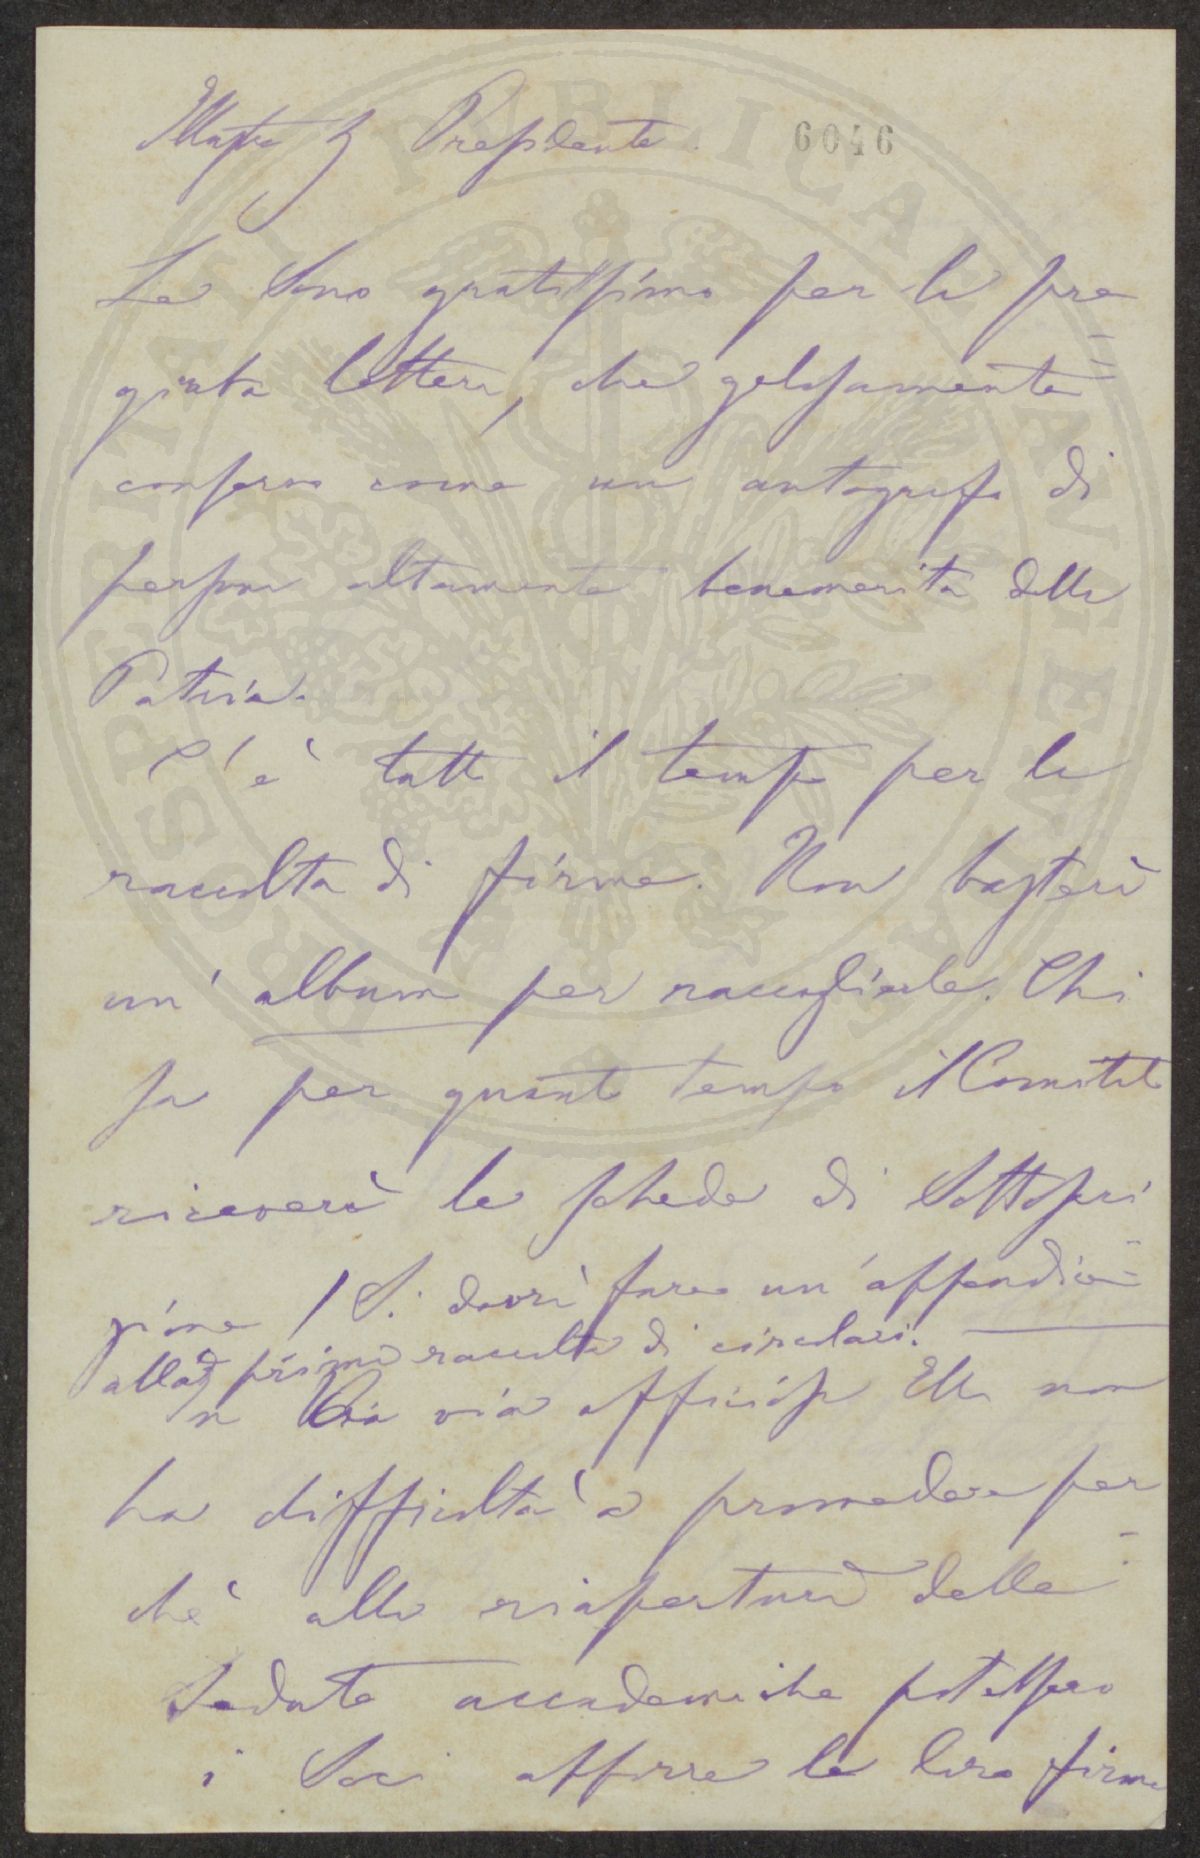 Illustre Presidente. 6046
Le sono gratissimo per la pre=
giata lettera, che gelosamente
conservo come un autografo di
persona altamente benemerita della
Patria.
C'è tutto il tempo per la
raccolta di firme. Non basterà
un' album per raccoglierle. Chi
sa per quanto tempo il Comitato
riceverà le schede di sottoscri=
zione! Si dovrà fare un'appendice
alla prima raccolta di circolari.
via officiosa Ella non
ha difficoltà a provvedere per=
chè alla riapertura delle
sedute accademiche potessero
i Soci apporre le loro firme
PROSPERITAS PUBLICA